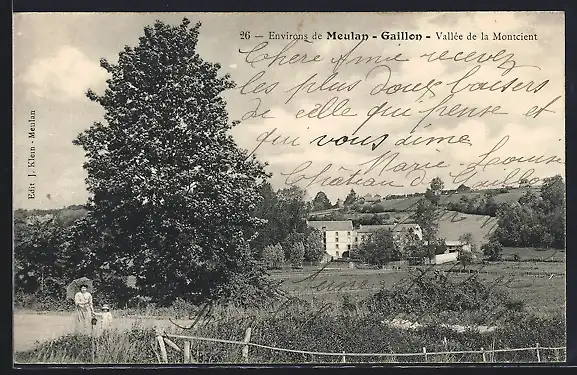 26 — Environs de Meulan - Gaillon - Vallée de la Montcient
Chère Amie recevez
les plus doux baisers
de celle qui pense et
qui vous aime
Marie Louise
Château de Gaillon
Edit J. Klein - Meulan